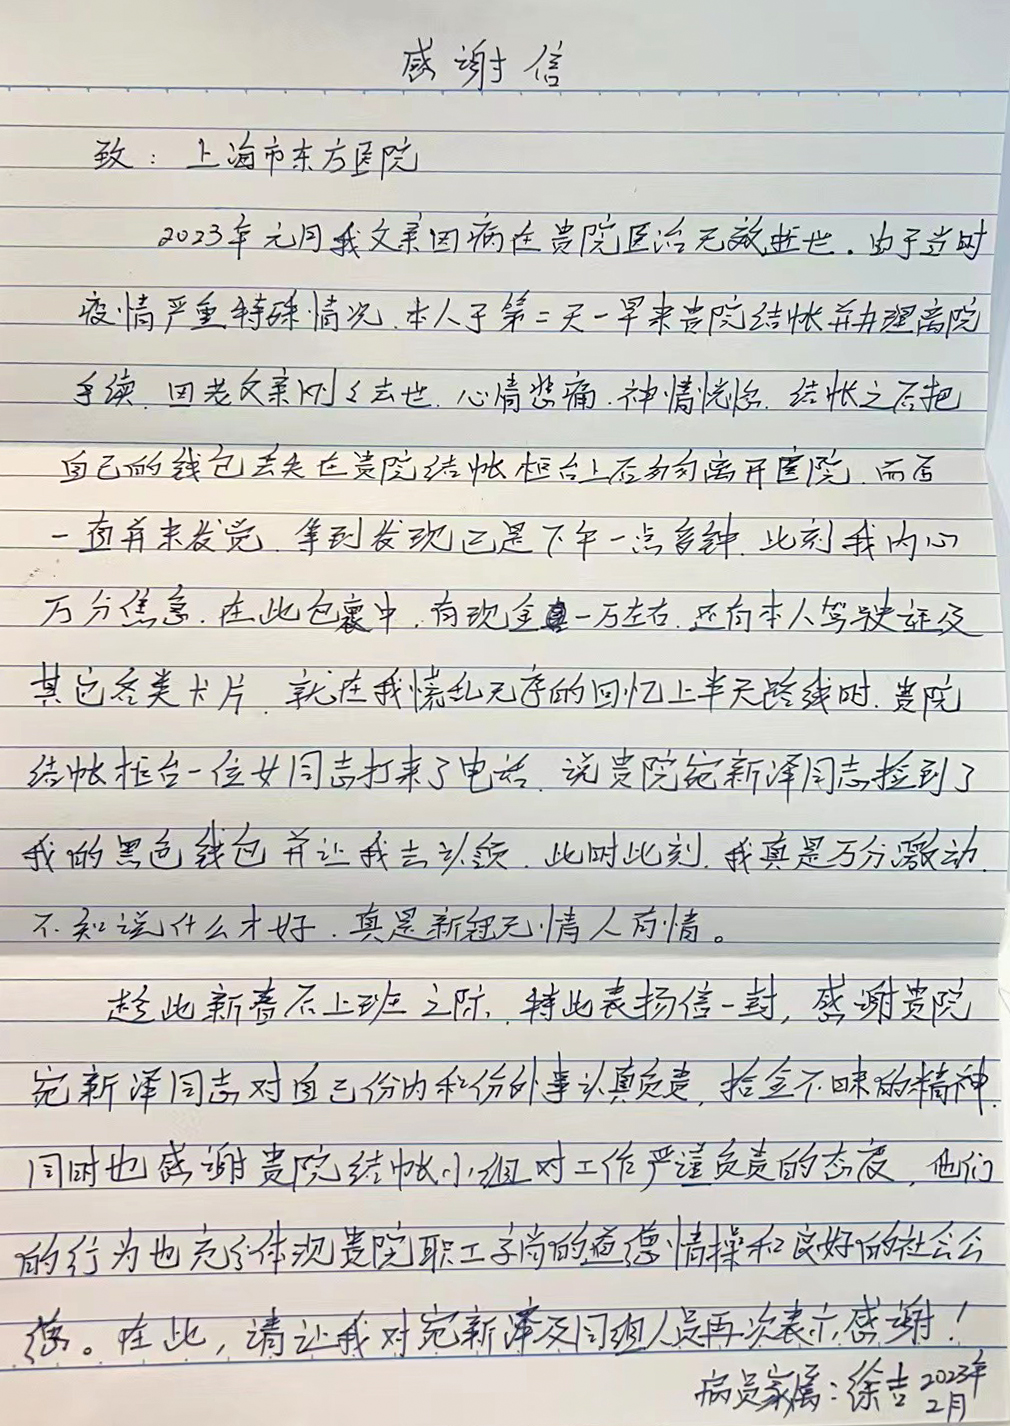 感谢信
致：上海市东方医院
2023年元月我父亲因病在贵院医治无效逝世.由于当时
疫情严重特殊情况.本人于第二天一早来贵院结帐并办理离院
手续.因老父亲刚刚去世.心情悲痛.神情恍惚.结帐之后把
自己的钱包丢失在贵院结帐柜台上后匆匆离开医院.而后
一直并未发觉.等到发现已是下午一点多钟.此刻我内心
万分焦急.在此包裹中.有现金一万左右.还有本人驾驶证及
其它各类卡片.就在我慌乱无序的回忆上半天路线时.贵院
结帐柜台一位女同志打来了电话.说贵院宛新泽同志捡到了
我的黑色钱包并让我去认领.此时此刻.我真是万分激动.
不知说什么才好.真是新冠无情人有情。
趁此新春后上班之际.特此表扬信一封，感谢贵院
宛新泽同志对自己份内和份外事认真负责，拾金不昧的精神.
同时也感谢贵院结帐小组对工作严谨负责的态度，他们
的行为也充分体现贵院职工高尚的道德情操和良好的社会公
德。在此，请让我对宛新泽及同组人员再次表示感谢！
病员家属：徐吉 2023年
2月